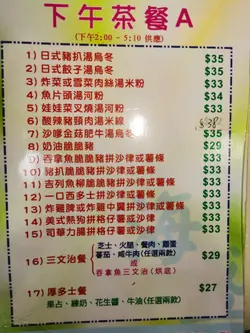 下午茶餐A
(下午2:00 - 5:10 供應)
1) 日式豬扒湯烏冬 $35
2) 日式餃子湯烏冬 $35
3) 炸菜或雪菜肉絲湯米粉 $33
4) 魚片頭湯河粉 $34
5) 娃娃菜叉燒湯河粉 $33
6) 酸辣豬頸肉湯米線
7) 沙嗲金菇肥牛湯烏冬
8) 奶油脆脆豬 $29
9) 吞拿魚脆脆豬拼沙律或薯條 $33
10) 豬扒脆脆豬拼沙律或薯條 $33
11) 吉列魚柳脆脆豬拼沙律或薯條 $33
12) 一口西多士拼沙律或薯條 $33
13) 炸雞脾或炸雞中翼拼沙律或薯條 $33
14) 美式熱狗拼格仔薯或沙律 $33
15) 司華力腸拼格仔薯或沙律 $33
芝士、火腿、餐肉、雞蛋
16) 三文治餐 蕃茄、咸牛肉(任選兩款) $29
或
吞拿魚三文治(烘底)
17) 厚多士餐 $27
果占、練奶、花生醬、牛油(任選兩款)